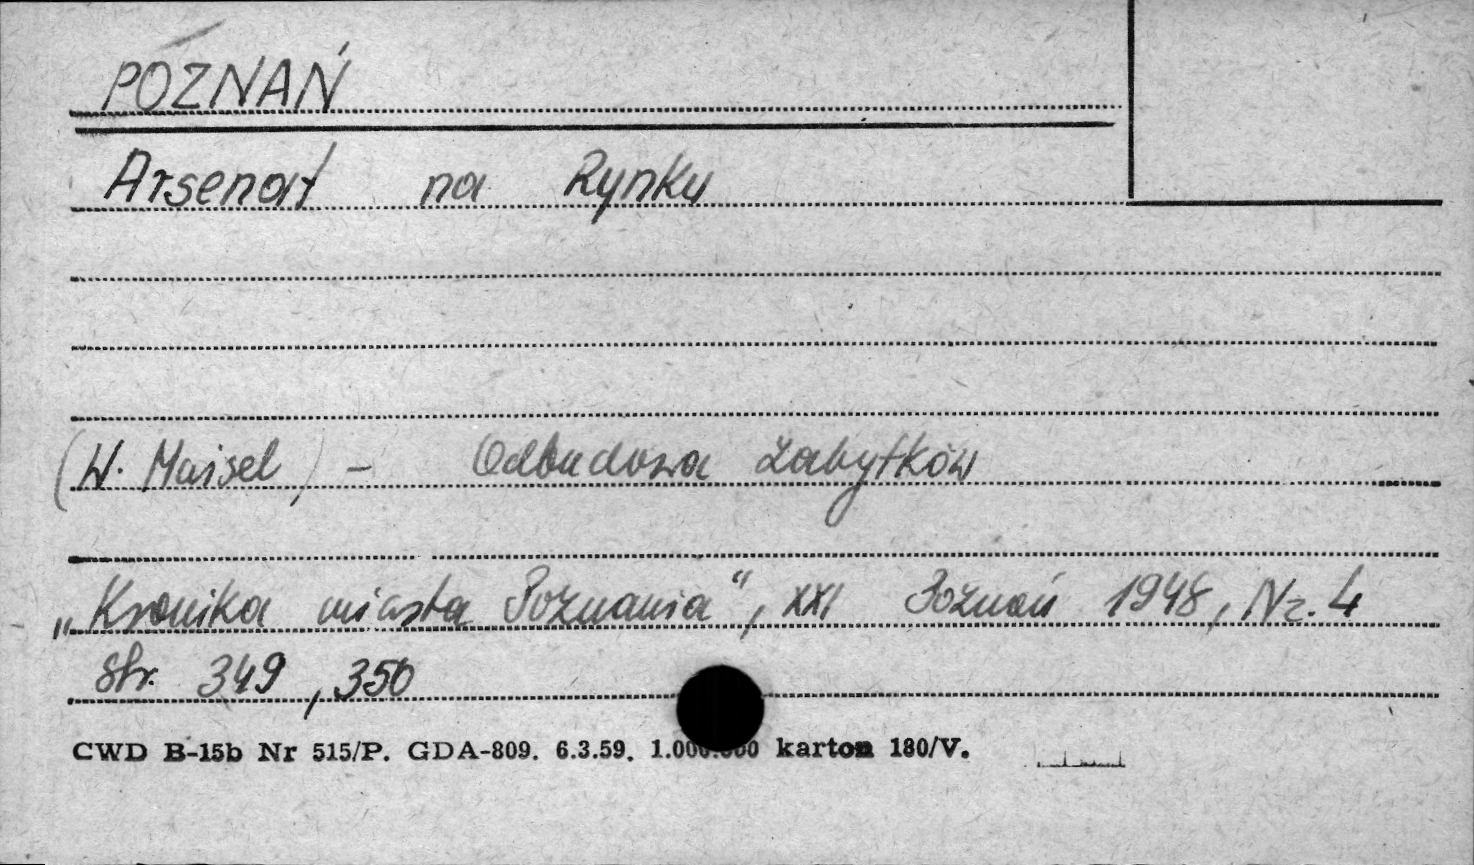 POZNAŃ
Arsenał na Rynku
(W. Maisel) - Odbudowa zabytków
„Kronika miasta Poznania“, XXI Poznań 1948, Nr. 4
str. 349, 350
CWD B-15b Nr 515/P. GDA-809. 6.3.59. 1.000.000 karton 180/V.